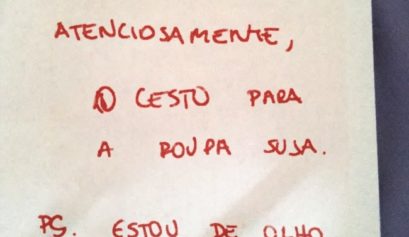 ATENCIOSAMENTE,
O CESTO PARA
A ROUPA SUJA.
PS. ESTOU DE OLHO